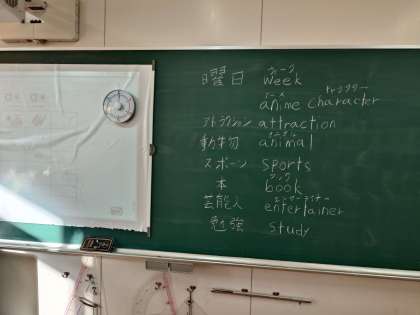 ウィーク
曜日 week
アニメ キャラクター
anime character
アトラクション attraction
アニマル
動物 animal
スポーツ sports
ブック
本 book
エンターテイナー
芸能人 entertainer
勉強 study